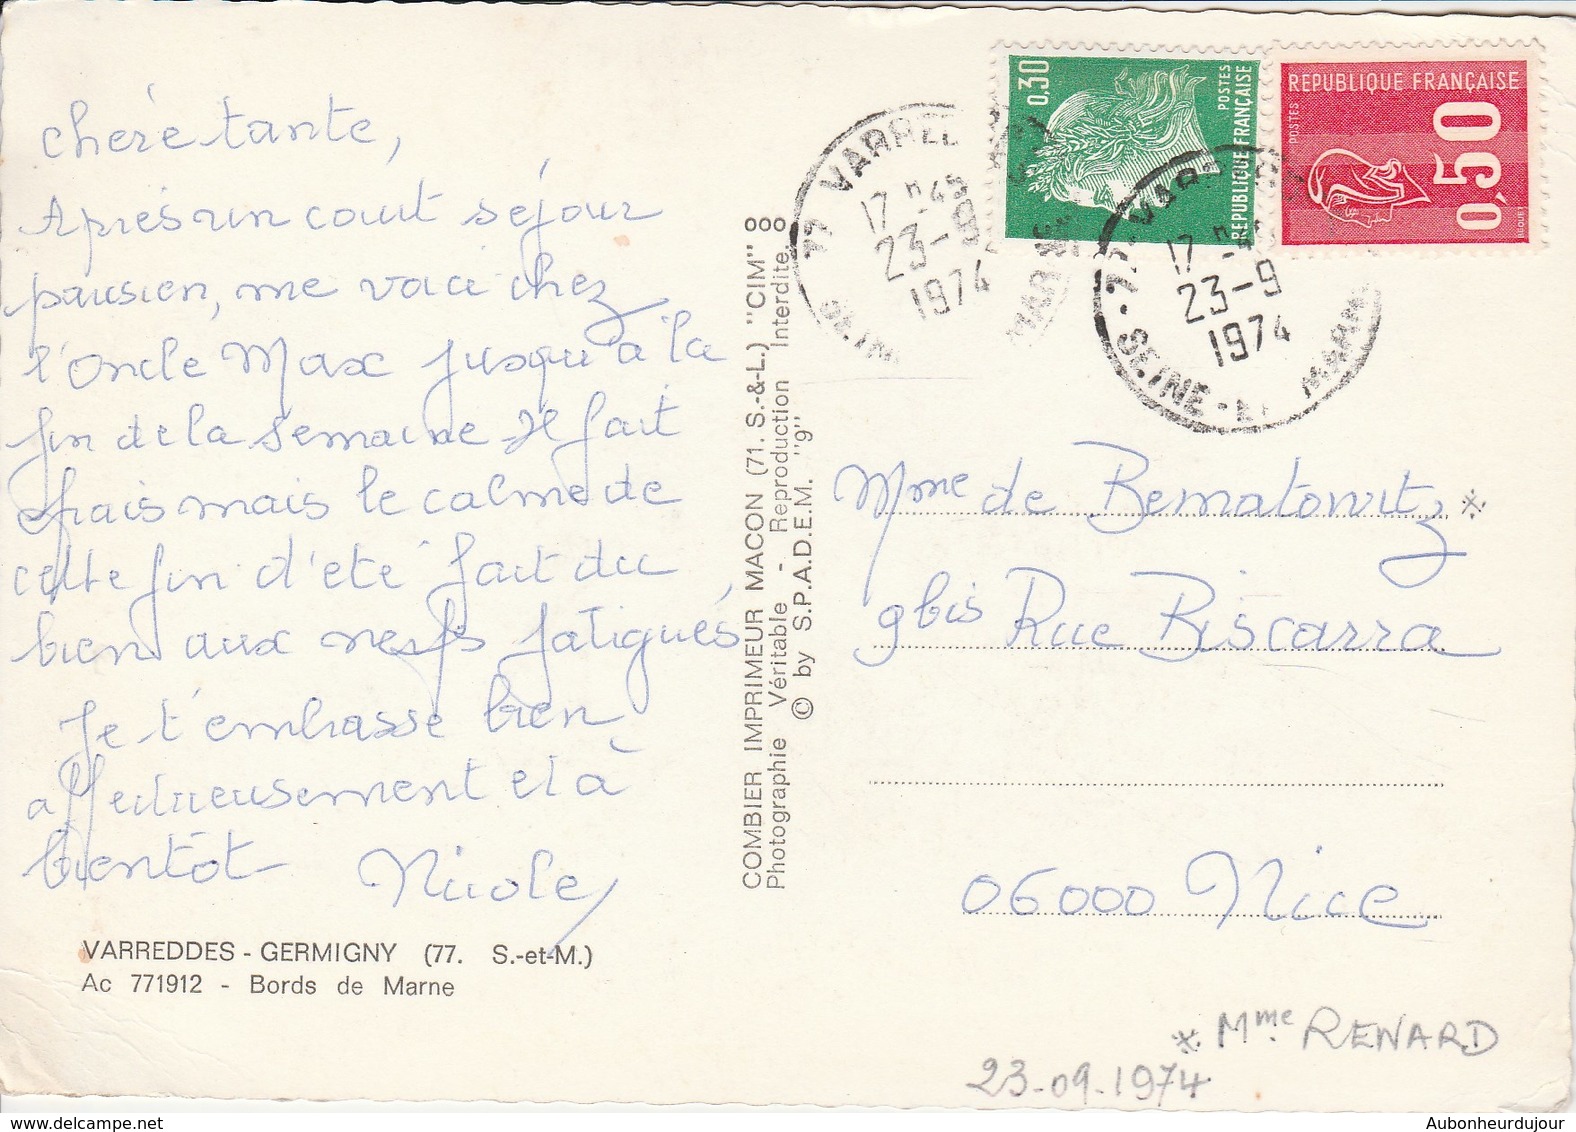 chère tante,
Après un court séjour
parisien, me voici chez
l'Oncle Max jusqu'à la
fin de la semaine Il fait
frais mais le calme de
cette fin d'été fait du
bien aux nerfs fatigués,
Je t'embrasse bien
affectueusement et à
bientôt Nicole
VARREDDES - GERMIGNY (77. S.-et-M.)
Ac 771912 - Bords de Marne
COMBIER IMPRIMEUR MACON (71. S.-&-L.) "CIM"
Photographie Véritable - Reproduction Interdite
© by S.P.A.D.E.M. "9"
0,30
POSTES
REPUBLIQUE FRANÇAISE
REPUBLIQUE FRANÇAISE
POSTES
0,50
BEQUET
77 VARRED
17 H 45
23-9
1974
SEINE
MARNE
77 - VAR
17 H
23-9
1974
SEINE - MARN
Mme de Bematowitz *
9bis Rue Biscarra
06000 Nice
* Mme RENARD
23-09-1974
Aubonheurdujour